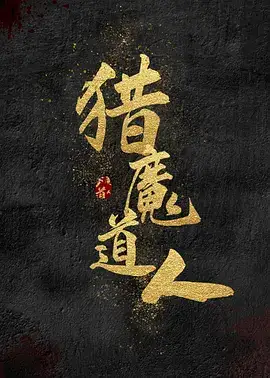 猎魔道人